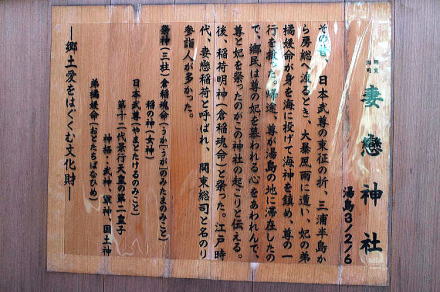 妻戀神社
湯島3/2/6
その昔、日本武尊の東征の折、三浦半島か
ら房総へ渡るとき、大暴風雨に遭い、妃の弟
橘媛命が身を海に投げて海神を鎮め、尊の一
行を救った。帰途、尊が湯島の地に滞在したの
で、郷民は尊の妃を慕われる心をあわれんで、
尊と妃を祭ったのがこの神社の起こりと伝える。
後、稲荷明神(倉稲魂命)と祭った。江戸時
代、妻恋稲荷と呼ばれ、関東総司と名のり
参詣人が多かった。
祭神(三柱)倉稲魂命(うか(うが)のみたまのみこと)
稲の神(女神)
日本武尊(やまとたけるのみこと)
第十二代景行天皇の第二皇子
神格・武神、軍神、国土神
弟橘媛命(おとたちばなひめ)
―郷土愛をはぐくむ文化財―